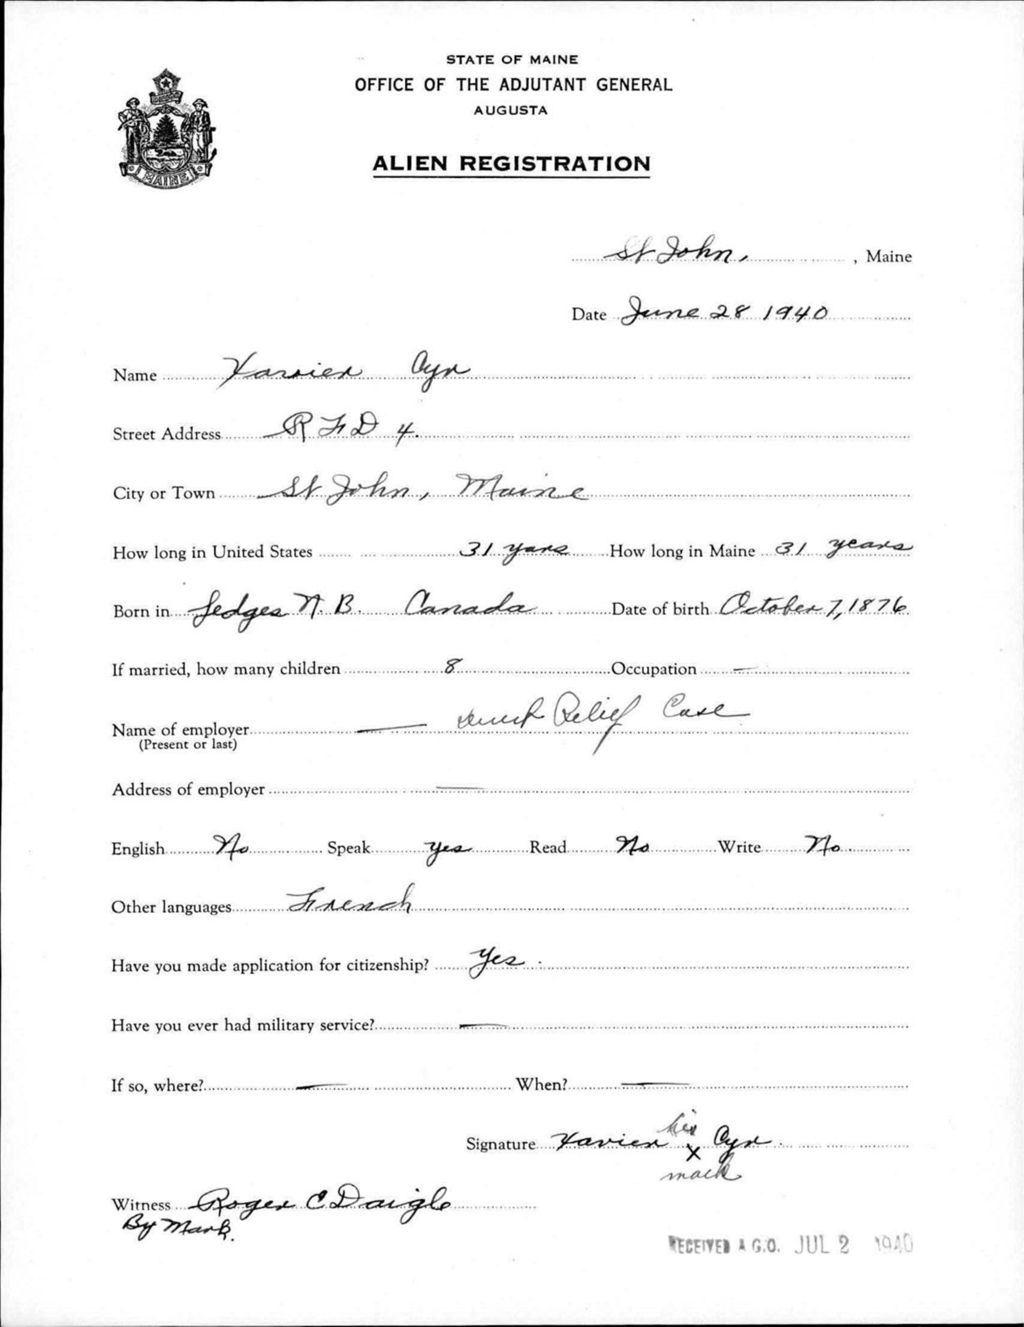 STATE OF MAINE
OFFICE OF THE ADJUTANT GENERAL
AUGUSTA
MAINE
ALIEN REGISTRATION
St John, , Maine
Date June 28 1940
Name Xavier Cyr
Street Address R F D 4.
City or Town St John, Maine
How long in United States 31 years How long in Maine 31 years
Born in Ledges N. B. Canada Date of birth October 7, 1876
If married, how many children 8 Occupation —
Name of employer — Relief Case
(Present or last)
Address of employer —
English No Speak yes Read No Write No
Other languages French
Have you made application for citizenship? Yes
Have you ever had military service? —
If so, where? — When? —
his
Signature Xavier X Cyr
mark
Witness Roger C Daigle
By Mark.
RECEIVED A.G.O. JUL 2 1940